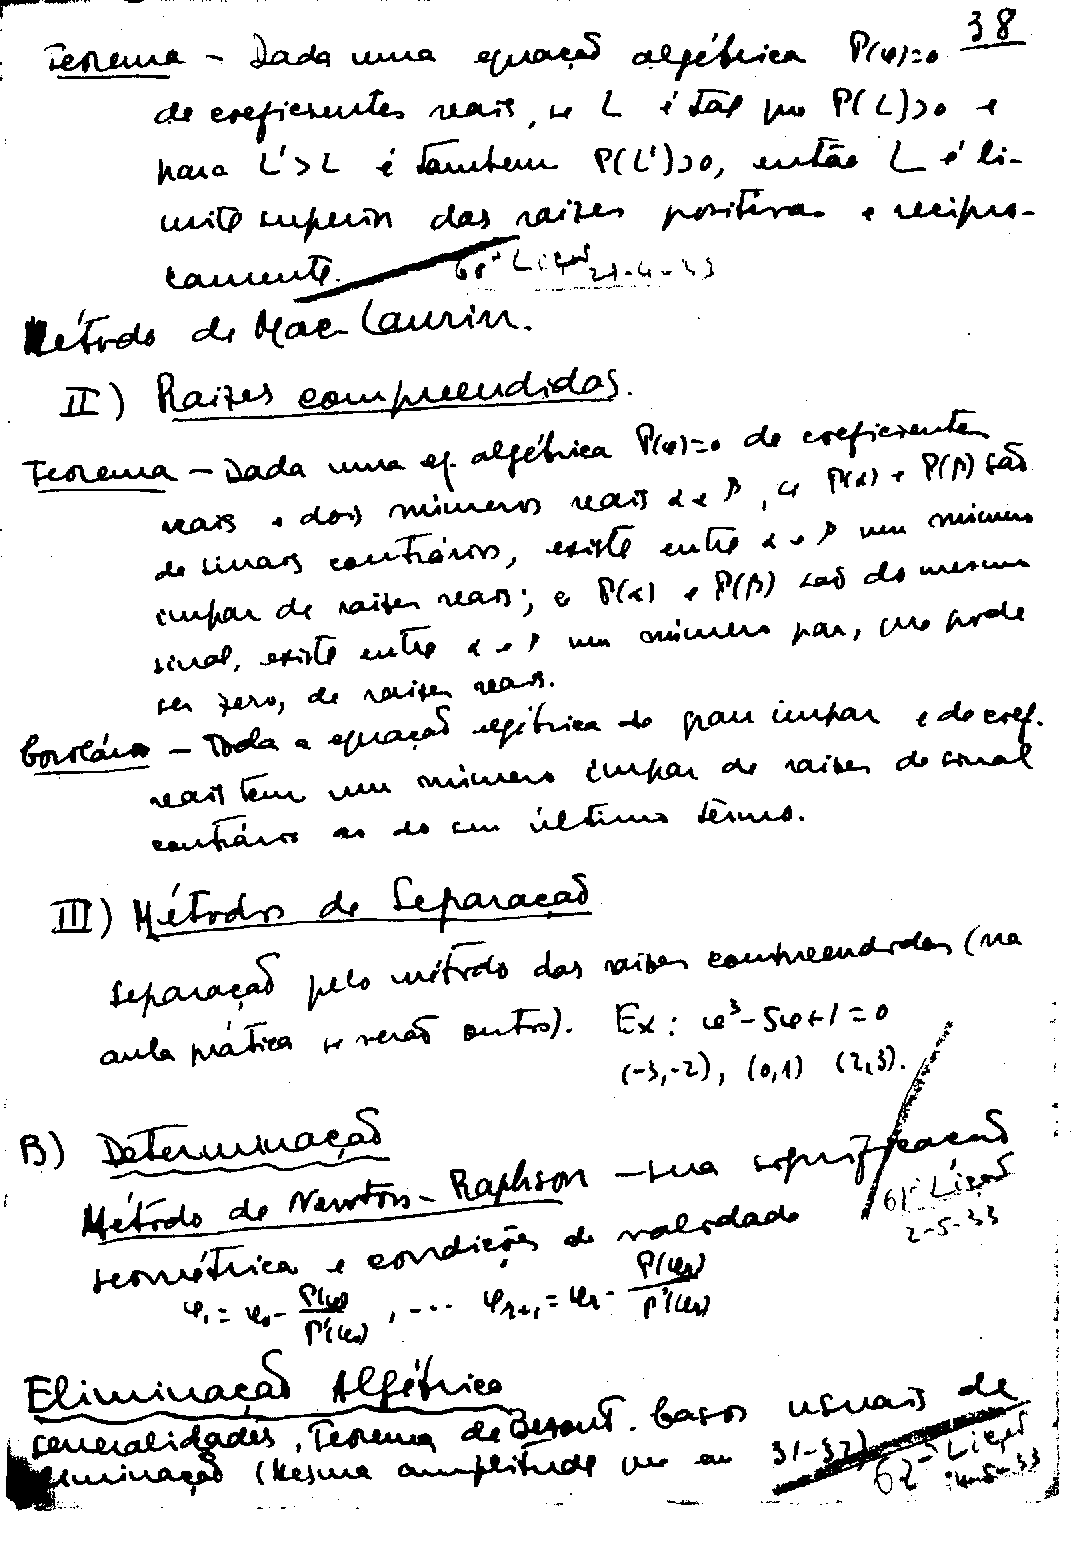 38
Teorema – Dada uma equação algébrica P(φ)=0
de coeficientes reais, se L é tal que P(L)>0 e
para L'>L é tambem P(L')>0, então L é li-
mite superior das raizes positivas e recipro-
camente.
60ª Lição
Método de Mac-Laurin.
II) Raizes compreendidas.
Teorema – Dada uma eq. algébrica P(φ)=0 de coeficientes
reais e dois números reais α e β, se P(α) e P(β) são
de sinais contrários, existe entre α e β um número
impar de raizes reais; se P(α) e P(β) são do mesmo
sinal, existe entre α e β um número par, que pode
ser zero, de raizes reais.
Corolário – Toda a equação algébrica de grau impar e de coef.
reais tem um número impar de raizes de sinal
contrário ao do seu último termo.
III) Métodos de Separação
Separação pelo método das raizes compreendidas (na
aula prática se verão outros). Ex: φ³-5φ+1=0
(-3,-2), (0,1) (2,3).
B) Determinação
Método de Newton-Raphson – sua significação
61ª Lição
2-5-33
geométrica e condições de validade
φ₁ = φ₀ - P(φ₀)/P'(φ₀), ... φₙ₊₁ = φₙ - P(φₙ)/P'(φₙ)
Eliminação Algébrica
Generalidades, Teorema de Bezout. Casos usuais de
eliminação (Mesma amplitude que em 31-32)
62ª Lição